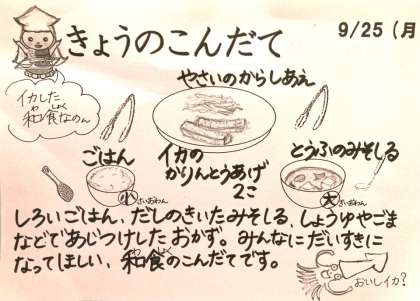 きょうのこんだて
9/25(月
イカした
和食なのん
わ しょく
やさいのからしあえ
ごはん
小
さいおわん
イカの
かりんとうあげ
2こ
とうふのみそしる
大
さいおわん
しろいごはん、だしのきいたみそしる、しょうゆやごま
などであじつけしたおかず。みんなにだいすきに
なってほしい、和食のこんだてです。
わ しょく
おいしイカ?